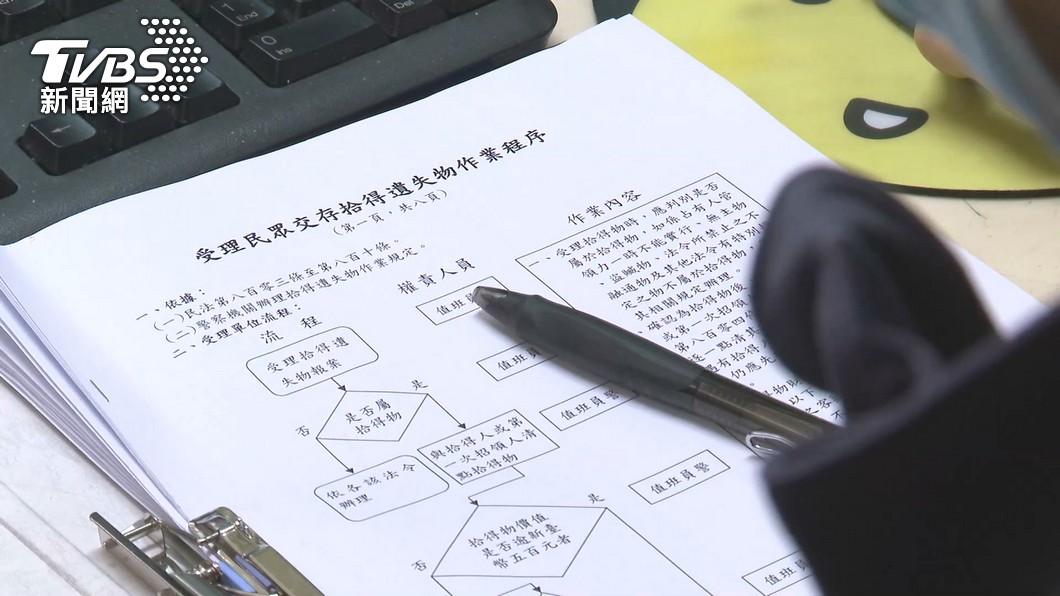 TVBS
新聞網
1
End
0
Ins
Del
受理民眾交存拾得遺失物作業程序
（第一頁，共八頁）
一、依據：
（一）民法第八百零三條至第八百十條。
（二）警察機關辦理拾得遺失物作業規定。
二、受理單位流程：
流 程
權責人員
作業內容
受理拾得遺
失物報案
值班員
是否屬
拾得物
是
否
值班員
與拾得人或第
一次招領人清
點拾得物
值班員警
依各該法令
辦理
值班員警
拾得物價值
是否逾新臺
幣五百元者
是
否
值班員
一、受理拾得物時，應判別是否
屬於拾得物，如係占有人管
領力一時不能實行、無主物
、盜贓物、法令所禁止之不
融通物及其他法令有特別
定之物不屬於拾得物，
其相關規定辦理。
、確認為拾得物後
或第一次招領
第八百零四
逐一點清其
還有拾得
仍應先
物財
以下
之客